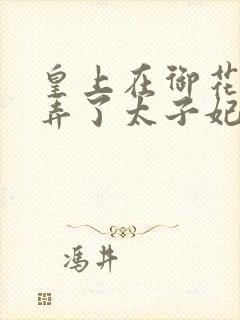 皇上在御花
弄了太子妃
冯井